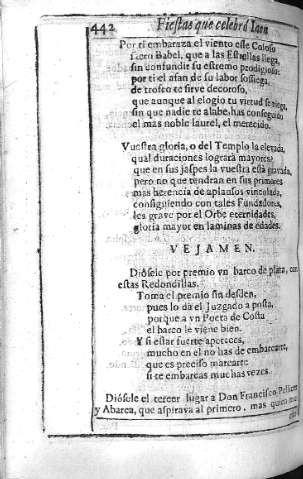 442 Fiestas que celebrò Iaen
Por ti embaraza el viento este Coloso
sacro Babel, que a las Estrellas llega,
sin confundir su estremo prodigioso:
por ti el afan de su labor sossiega,
de trofeo te sirve decoroso,
que aunque al elogio tu virtud se niega,
sin que nadie te alabe, has conseguido
el mas noble laurel, el merecido.
Vuestra gloria, o del Templo la elevada,
qual duraciones logrará mayores?
que en sus jaspes la vuestra està gravada,
pero no que tendran en sus primores
mas herencia de aplausos vinculada,
consiguiendo con tales Fundadores,
les grave por el Orbe eternidades,
gloria mayor en laminas de edades.
VEJAMEN.
Diósele por premio vn barco de plata, con
estas Redondillas.
Toma el premio sin desden,
pues lo dà el Juzgado a posta,
porque a vn Poeta de Costa
el barco le viene bien.
Y si estar fuerte apeteces,
mucho en el no has de embarcarte,
que es preciso marearte
si te embarcas muchas vezes.
Diósele el tercer lugar a Don Francisco Pellicer
y Abarca, que aspirava al primero, mas quien